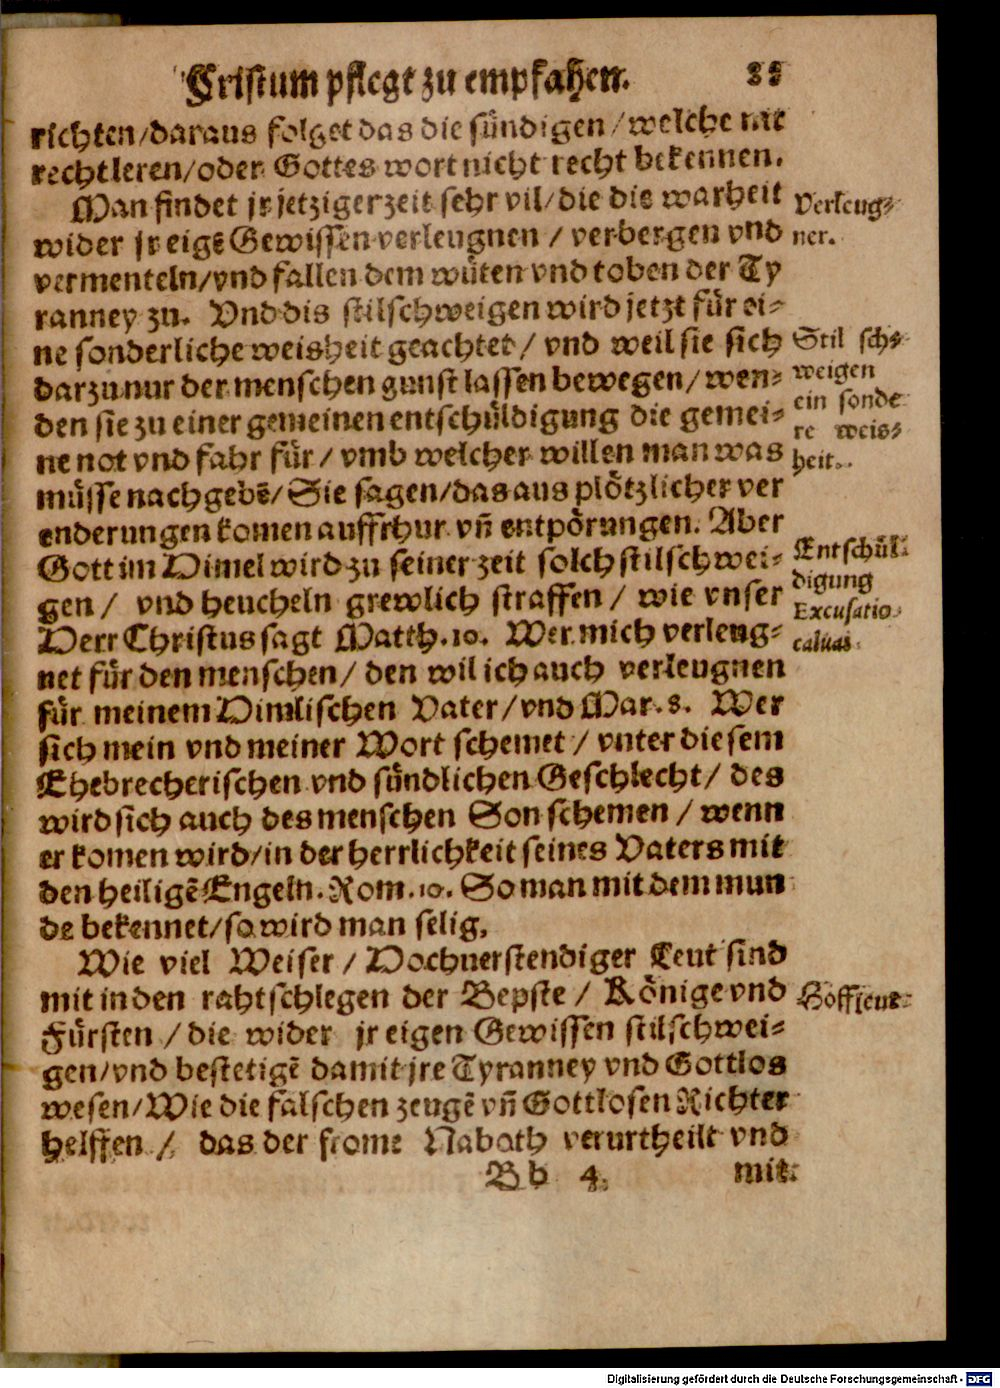 Cristum pflegt zu empfahen. 
richten/daraus folget das die sündigen/welche nit
rechtleren/oder Gottes wort nicht recht bekennen.
Man findet jr jetziger zeit sehr vil/die die warheit
wider jr eigē Gewissen verleugnen / verbergen vnd
vermenteln/vnd fallen dem wüten vnd toben der Ty
ranney zu. Vnd dis stilschweigen wird jetzt für ei-
ne sonderliche weisheit geachtet/ vnd weil sie sich
darzu nur der menschen gunst lassen bewegen/ wen-
den sie zu einer gemeinen entschüldigung die gemei-
ne not vnd fahr für/ vmb welcher willen man was
müsse nachgebē/ Sie sagen/das aus plötzlicher ver
enderungen komen auffrhur vn̄ entpörungen. Aber
Gott im Himel wird zu seiner zeit solch stilschwei-
gen/ vnd heucheln grewlich straffen/ wie vnser
Herr Christus sagt Matth.10. Wer mich verleug-
net für den menschen/ den wil ich auch verleugnen
für meinem Himlischen Vater/vnd Mar.8. Wer
sich mein vnd meiner Wort schemet/ vnter diesem
Ehebrecherischen vnd sündlichen Geschlecht/ des
wird sich auch des menschen Son schemen / wenn
er komen wird/in der herrlichkeit seines Vaters mit
den heiligē Engeln. Rom.10. So man mit dem mun
de bekennet/so wird man selig.
Wie viel Weiser / Hochuerstendiger Leut sind
mit in den rahtschlegen der Bepste/ Könige vnd
Fürsten /die wider jr eigen Gewissen stilschwei-
gen/vnd bestetigē damit jre Tyranney vnd Gottlos
wesen/Wie die falschen zeugē vn̄ Gottlosen Richter
helffen / das der frome Naboth verurtheilt vnd
Bb 4. mit
Verleug-
ner.
Stil sch-
weigen
ein sonde
re weis-
heit.
Entschül-
digung
Excusatio
Hoffleut
Digitalisierung gefördert durch die Deutsche Forschungsgemeinschaft - DFG